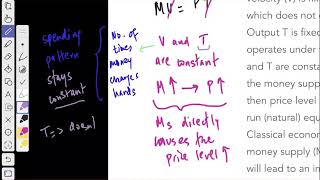 MV = PY
spending
pattern
stays
constant
T => doesn't
No. of
times
money
changes
hands
V and T
are constant
M↑ → P↑
Ms directly
causes the
price level ↑
velocity (V) is fi
which does not
Output T is fixed
operates under
and T are consta
the money suppl
then price level
run (natural) equ
Classical econom
money supply (M
will lead to an i